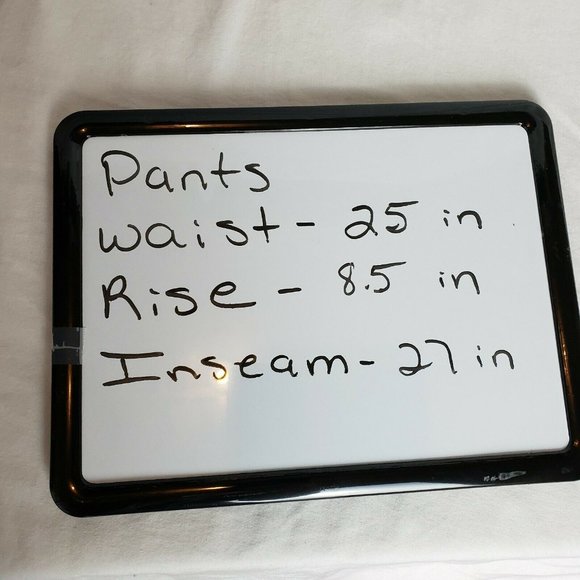 Pants
waist - 25 in
Rise - 8.5 in
Inseam - 27 in